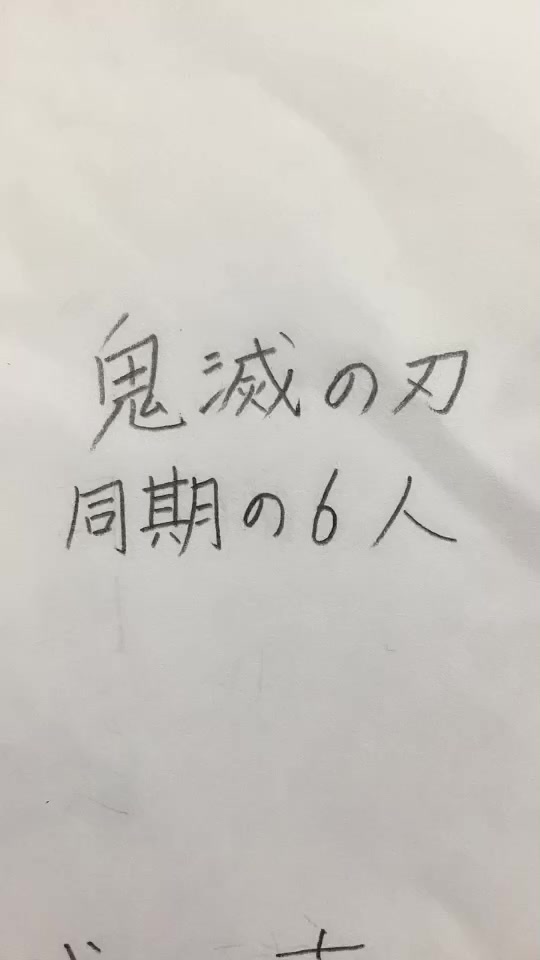 鬼滅の刃
同期の6人